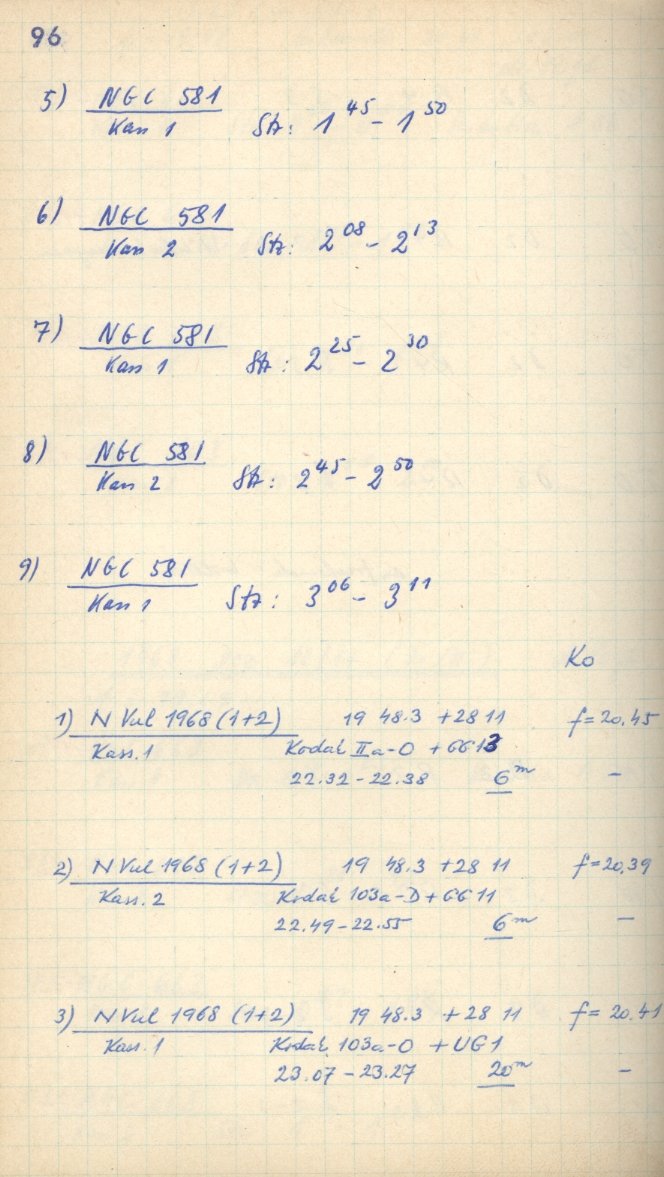 96
5) NGC 581
Kass 1 Stz: 1 45 - 1 50
6) NGC 581
Kass 2 Stz: 2 08 - 2 13
7) NGC 581
Kass 1 Stz: 2 25 - 2 30
8) NGC 581
Kass 2 Stz: 2 45 - 2 50
9) NGC 581
Kass 1 Stz: 3 06 - 3 11
Ko
1) N Vul 1968 (1+2) 19 48.3 +28 11 f = 20,45
Kass. 1 Kodak IIa-O + GG13
22.32 - 22.38 6 m -
2) N Vul 1968 (1+2) 19 48.3 +28 11 f = 20,39
Kass. 2 Kodak 103a-D + GG 11
22.49 - 22.55 6 m -
3) N Vul 1968 (1+2) 19 48.3 +28 11 f = 20,41
Kass. 1 Kodak 103a-O + UG1
23.07 - 23.27 20 m -